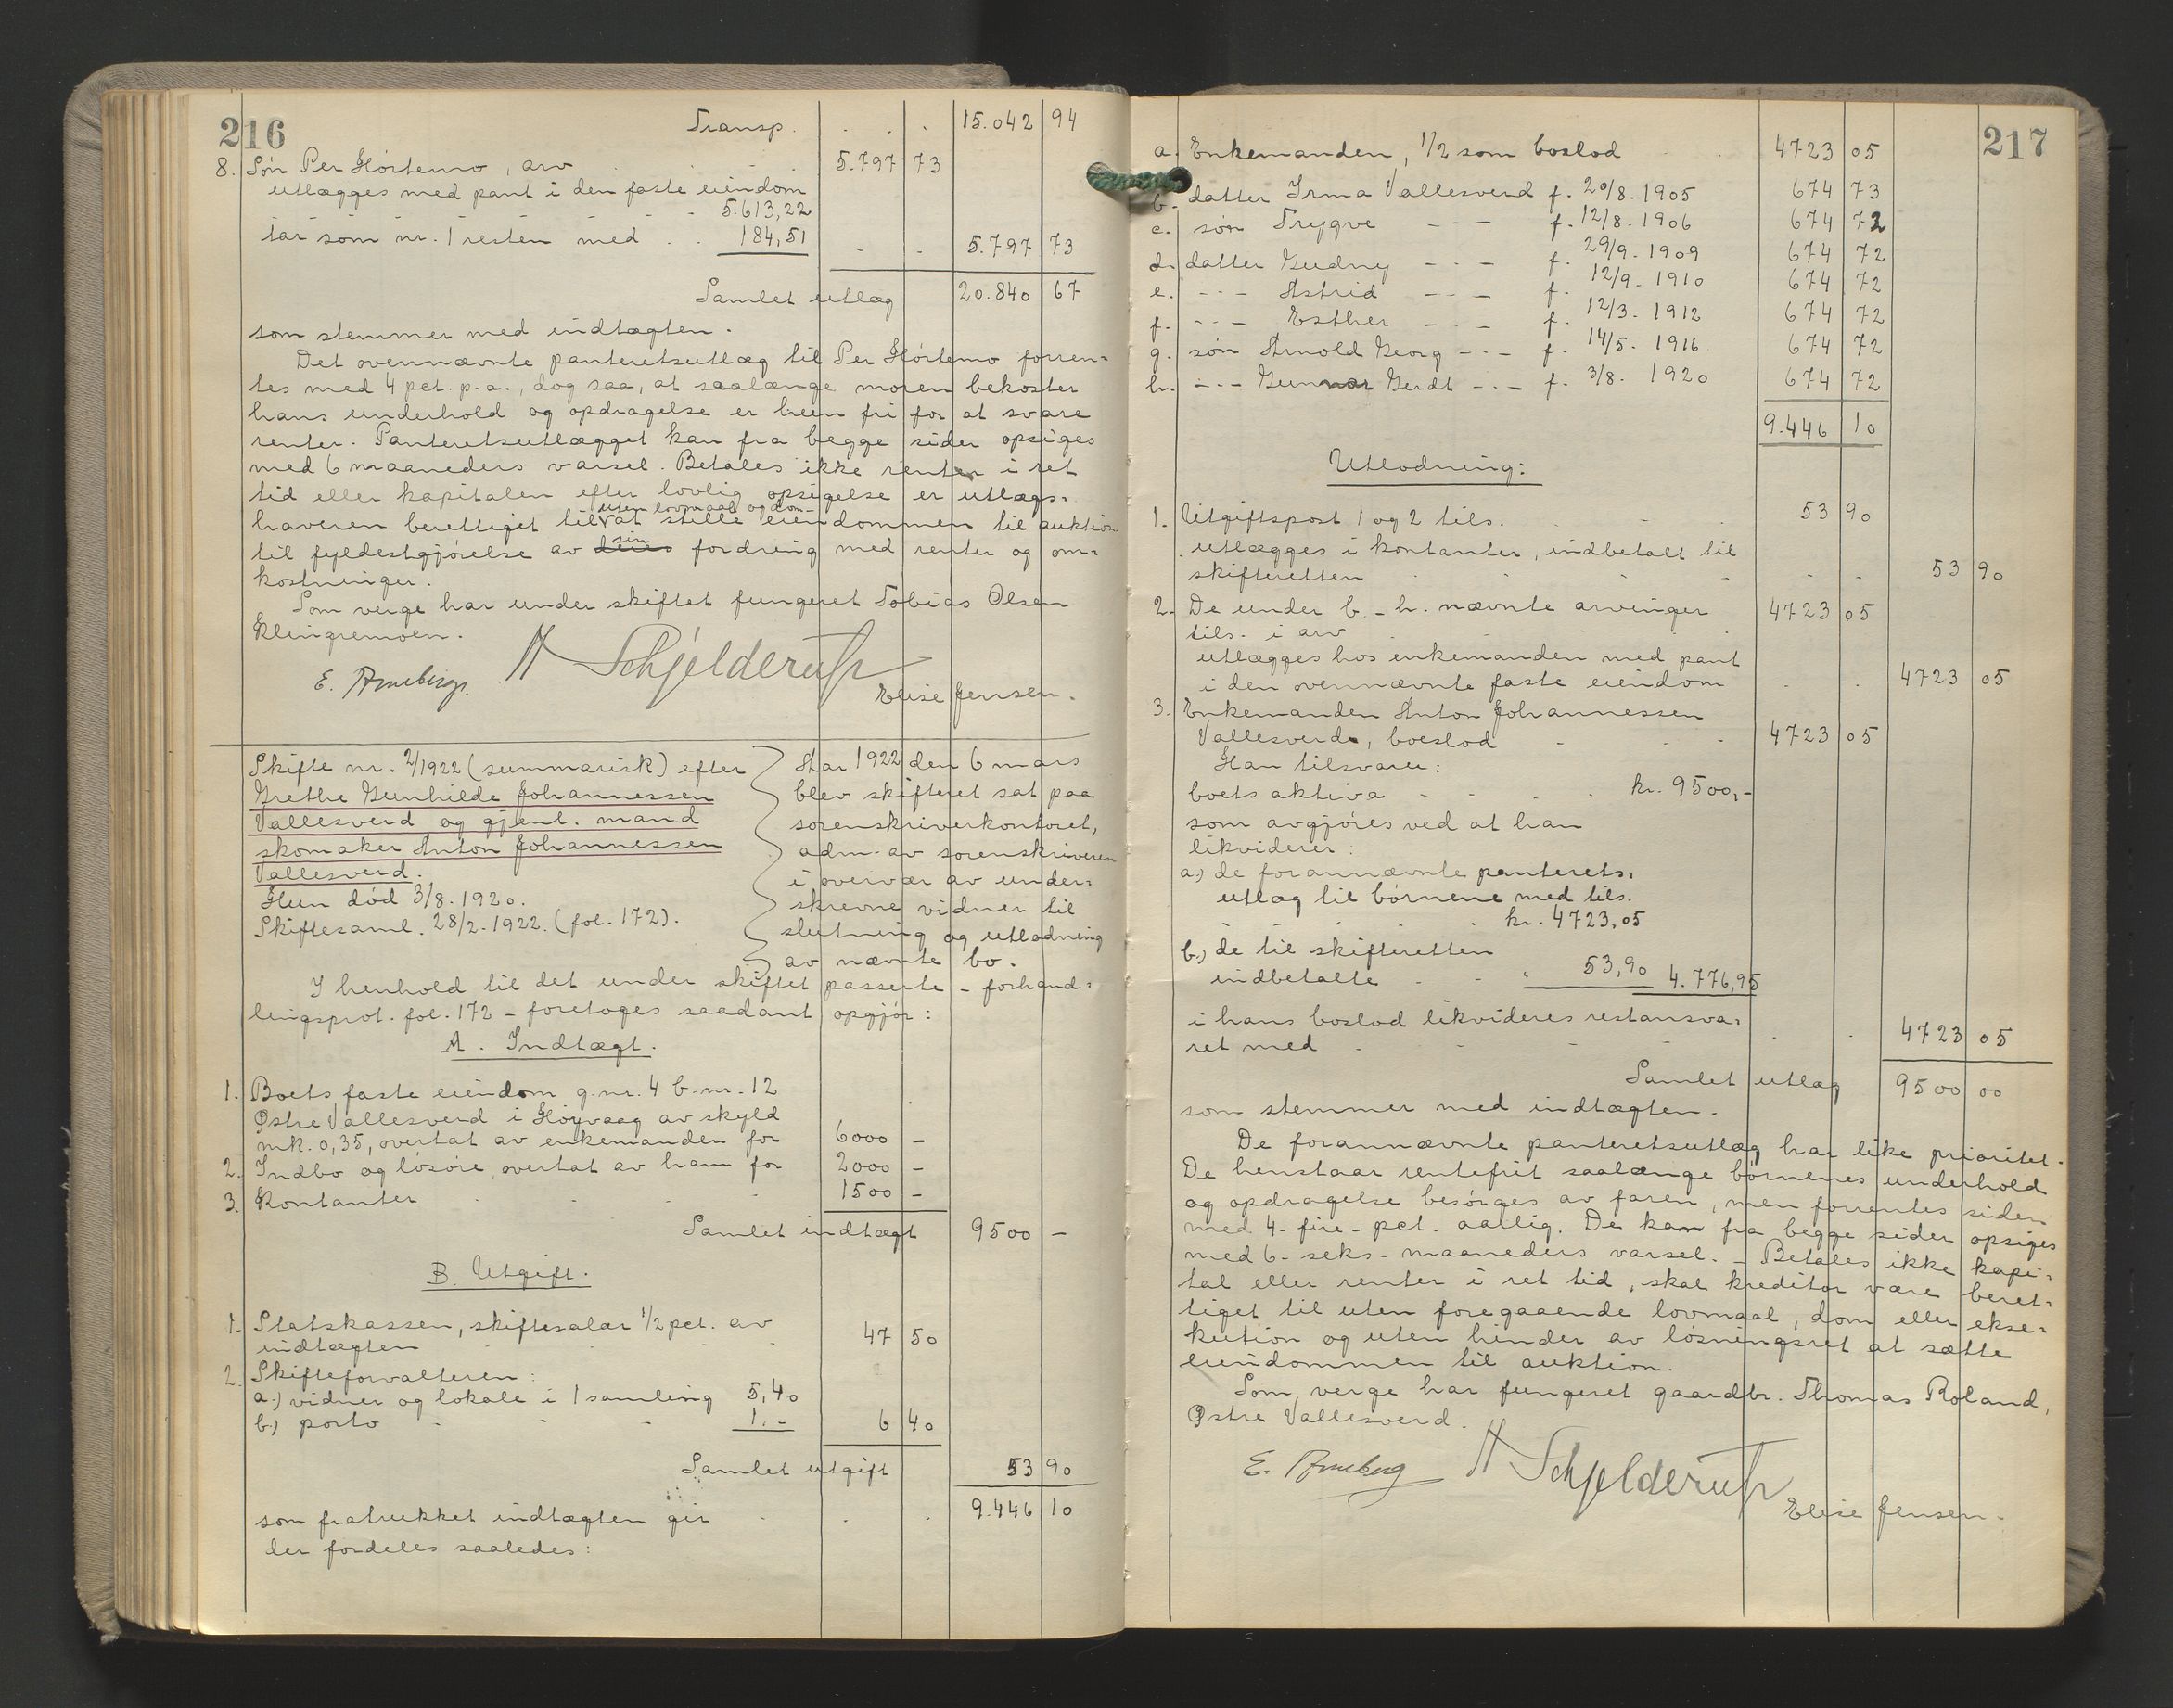 216
Transp. . . . 15.042 94
8. Søn Per Hørtemo, arv . . 5.797 73
utlægges med pant i den faste eiendom
. . . 5.613,22
tar som nr. 1 resten med . . 184,51 . . 5.797 73
Samlet utlæg 20.840 67
som stemmer med indtægten.
Det ovennævnte panteretsutlæg til Per Hørtemo forren=
tes med 4 pct. p.a., dog saa, at saalænge moren bekoster
hans underhold og opdragelse er hun fri for at svare
renter. Panteretsutlægget kan fra begge sider opsiges
med 6 maaneders varsel. Betales ikke renter i ret
tid eller kapitalen efter lovlig opsigelse er utlægs=
uten lovmaal og dom
haveren berettiget til at stille eiendommen til auktion
sin
til fyldestgjørelse av deres fordring med renter og om=
kostninger.
Som verge har under skiftet fungeret Tobias Olsen
Klingremoen.
E. Arneberg. H Schjelderup
Elise Jensen.
Skifte nr. 2/1922 (summarisk) efter
Grethe Gunhilde Johannessen
Vallesverd og gjenl. mand
skomaker Anton Johannessen
Vallesverd.
Hun død 3/8. 1920.
Skiftesaml. 28/2. 1922. (fol. 172).
Aar 1922 den 6 mars
blev skifteret sat paa
sorenskriverkontoret,
adm. av sorenskriveren
i overvær av under=
skrevne vidner til
slutning og utlodning
av nævnte bo.
I henhold til det under skiftet passerte - forhand=
lingsprot. fol. 172 - foretoges saadant opgjør:
A. Indtægt.
1. Boets faste eiendom g.nr. 4 b.nr. 12
Østre Vallesverd i Høyvaag av skyld
mk. 0,35, overtat av enkemanden for 6000 -
2. Indbo og løsøre, overtat av ham for 2000 -
3. Kontanter . . . . 1500 -
Samlet indtægt 9500 -
B. Utgift.
1. Statskassen, skiftesalær 1/2 pct. av
indtægten . . . 47 50
2. Skifteforvalteren:
a.) vidner og lokale i 1 samling 5,40
b.) porto . . . 1.- 6 40
Samlet utgift 53 90
som fratrukket indtægten gir . . . 9.446 10
der fordeles saaledes:
217
a. Enkemanden, 1/2 som boslod . . 4723 05
b. datter Irma Vallesverd f. 20/8. 1905 674 73
c. søn Trygve - - - f. 12/8. 1906 674 72
d. datter Gudny - - - f. 29/9. 1909 674 72
e. - - - Astrid - - - f. 12/9. 1910 674 72
f. - - - Esther - - - f. 12/3. 1912 674 72
g. søn Arnold Georg - - - f. 14/5. 1916 674 72
h. - - - Gunnar Gerdt - - - f. 3/8. 1920 674 72
9.446 10
Utlodning:
1. Utgiftspost 1 og 2 tils. . . . 53 90
utlægges i kontanter, indbetalt til
skifteretten . . . . . . 53 90
2. De under b - h. nævnte arvinger 4723 05
tils. i arv . . . .
utlægges hos enkemanden med pant
i den ovennævnte faste eiendom . . 4723 05
3. Enkemanden Anton Johannessen
Vallesverd, boeslod . . . 4723 05
Han tilsvarer:
boets aktiva . . . . kr. 9500,-
som avgjøres ved at han
likviderer:
a.) de forannævnte panterets=
utlæg til børnene med tils.
. . . . kr. 4723,05
b.) de til skifteretten
indbetalte . . " 53,90 4.776,95
i hans boslod likvideres restansva=
ret med . . . . . . 4723 05
Samlet utlæg 9500 00
som stemmer med indtægten.
De forannævnte panteretsutlæg har like prioritet.
De henstaar rentefrit saalænge børnenes underhold
og opdragelse besørges av faren, men forrentes siden
med 4 - fire - pct. aarlig. De kan fra begge sider opsiges
med 6 - seks - maaneders varsel. - Betales ikke kapi=
tal eller renter i ret tid, skal kreditor være beret=
tiget til uten foregaaende lovmaal, dom eller ekse=
kution og uten hinder av løsningsret at sætte
eiendommen til auktion.
Som verge har fungeret gaardbr. Thomas Roland,
Østre Vallesverd.
E. Arneberg H Schjelderup
Elise Jensen.